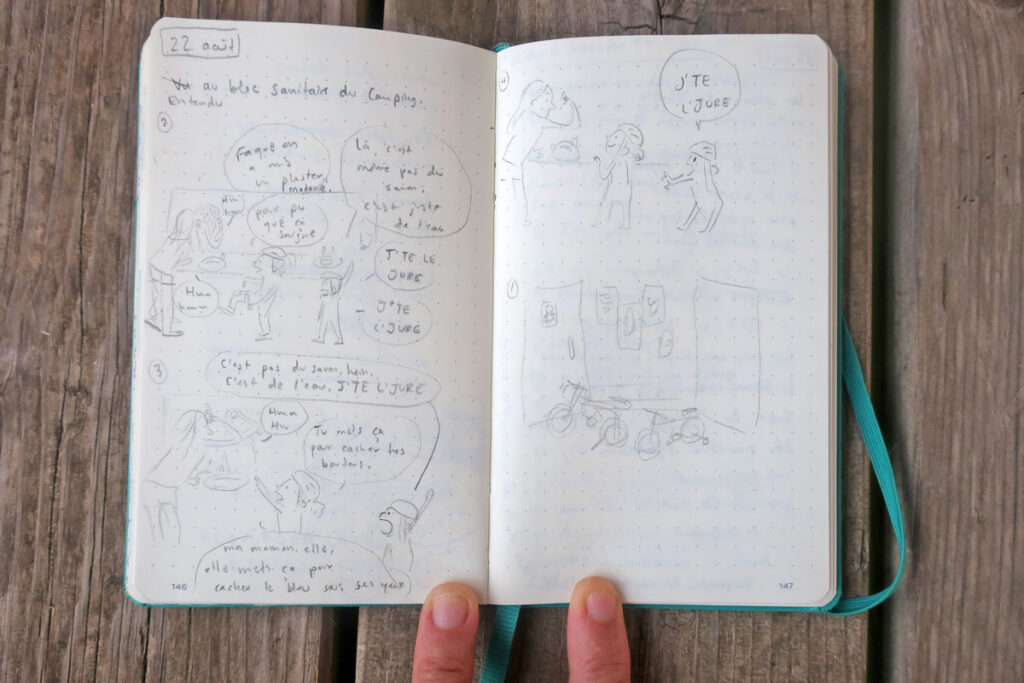 22 août
Vu au bloc sanitaire du camping.
Entendu
2
Faque on
a mis
un plaster,
madame.
Là, c'est
même pas du
savon,
c'est juste
de l'eau
Hm
hmm
pour pu
que ça
saigne
J'TE LE
JURE
Hmm
hmmm
J'TE
L'JURE
3
C'est pas du savon, hein,
C'est de l'eau, J'TE L'JURE
Hmm
Hm
Tu mets ça
pour cacher tes
boutons.
ma maman, elle,
elle mets ça pour
cacher le bleu sous ses yeux
146
4
J'TE
L'JURE
1
147